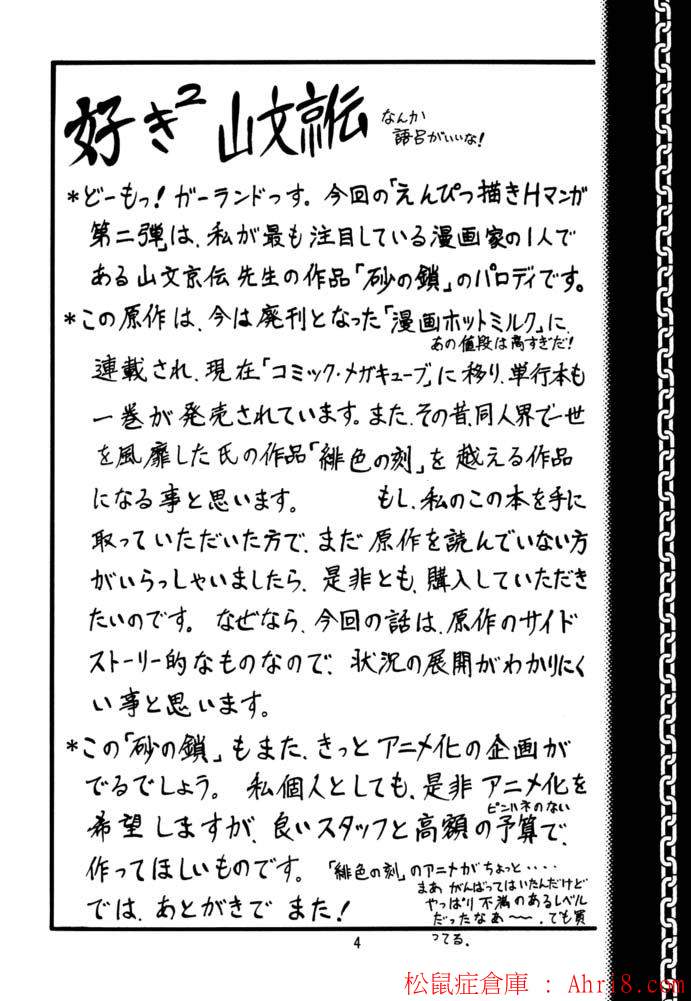 好き² 山文京伝
なんか
語呂がいいな!
*どーもっ! ガーランドっす。今回の「えんぴつ描きHマンガ
第二弾」は、私が最も注目している漫画家の1人で
ある山文京伝先生の作品「砂の鎖」のパロディです。
*この原作は、今は廃刊となった「漫画ホットミルク」に
あの値段は高すぎだ!
連載され、現在「コミック・メガキューブ」に移り、単行本も
一巻が発売されています。また、その昔、同人界で一世
を風靡した氏の作品「緋色の刻」を越える作品
になる事と思います。 もし、私のこの本を手に
取っていただいた方で、まだ原作を読んでいない方
がいらっしゃいましたら、是非とも、購入していただき
たいのです。なぜなら、今回の話は、原作のサイド
ストーリー的なものなので、状況の展開がわかりにく
い事と思います。
*この「砂の鎖」もまた、きっとアニメ化の企画が
でるでしょう。私個人としても、是非アニメ化を
ピンハネのない
希望しますが、良いスタッフと高額の予算で、
作ってほしいものです。
「緋色の刻」のアニメがちょっと‥‥
まあ がんばってはいたんだけど
やっぱり不満のあるレベル
だったなあ〜〜、でも買
ってる。
では、あとがきでまた!
4
松鼠症倉庫 : Ahri8.com